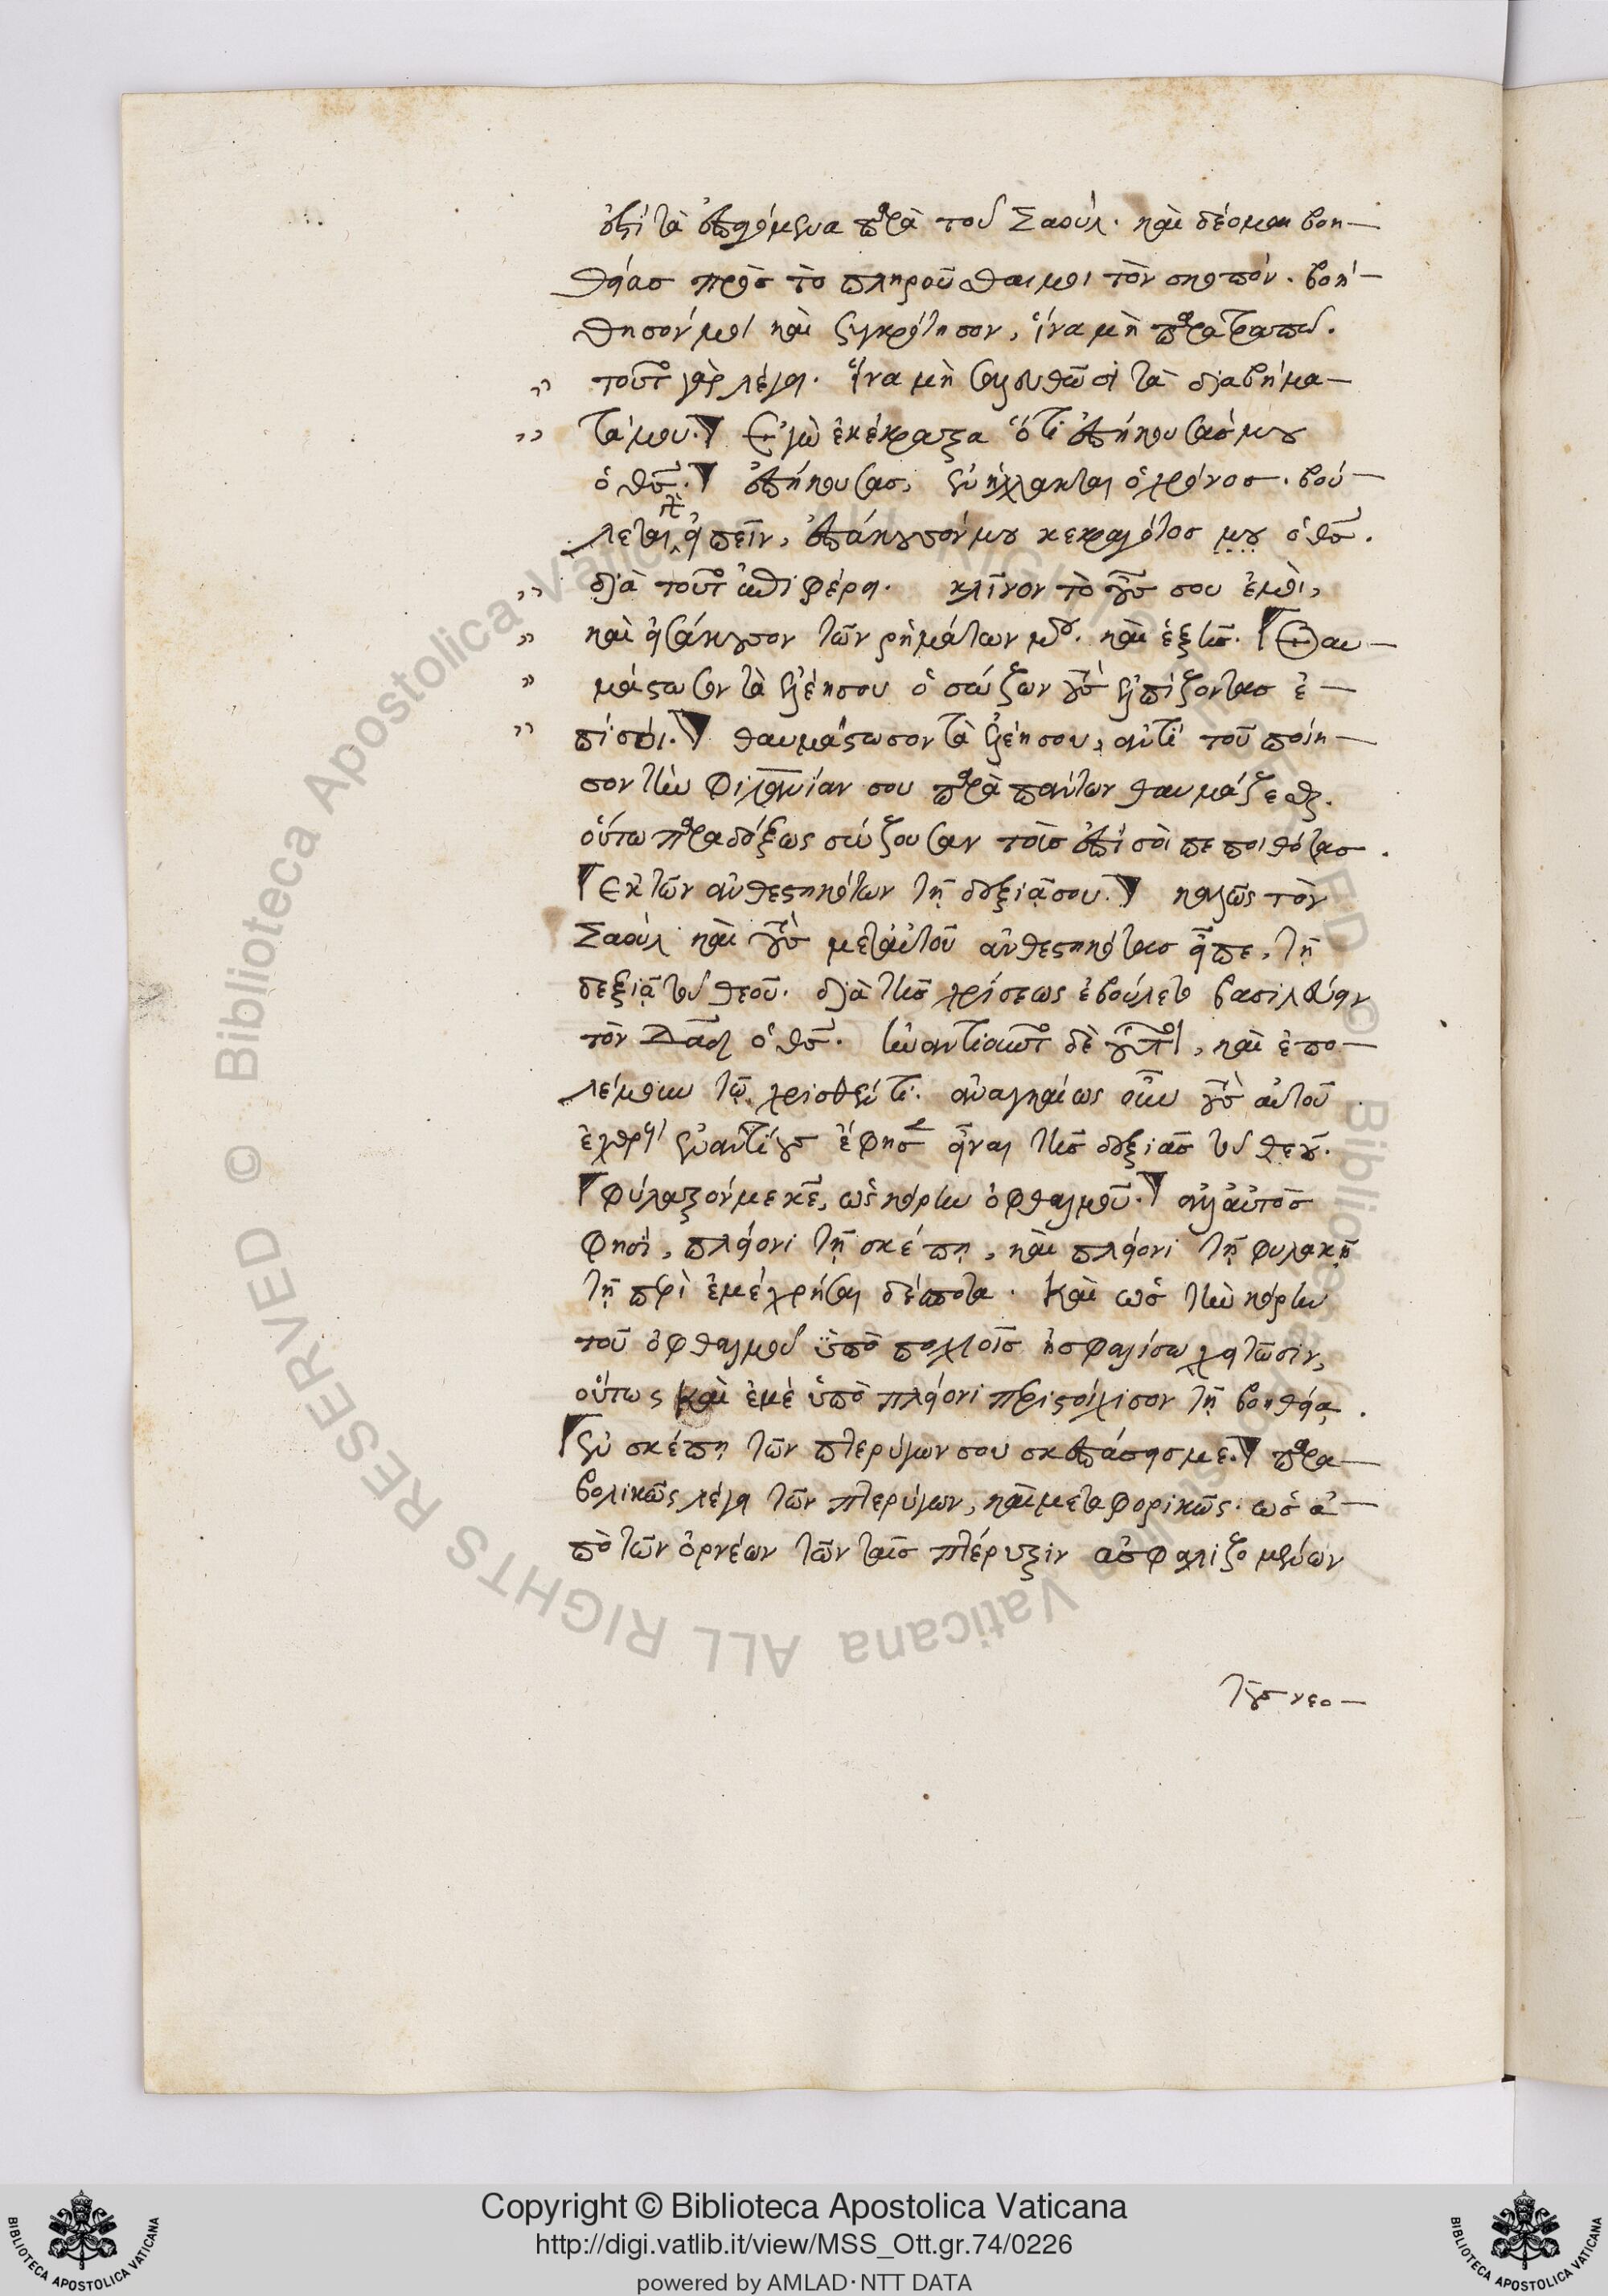 ἐπὶ τὰ ἐπαγόμενα παρὰ τοῦ Σαούλ. καὶ δέομαι βοη—
θείας πρὸς τὸ πληροῦσθαι μοι τὸν σκοπόν. βοή—
θησόν μοι καὶ συγκρότησον, ἵνα μὴ παρατραπῶ.
τοῦτο γὰρ λέγει. ἵνα μὴ σαλευθῶσι τὰ διαβήμα—
τά μου. Ἐγὼ ἐκέκραξα ὅτι ἐπήκουσάς μου
ὁ θς. ἐπήκουσας, ἐνήλλακται ὁ χρόνος. βού—
λεται γὰρ εἰπεῖν, ἐπάκουσόν μου κεκραγότος μου ὁ θς.
διὰ τοῦτο ἐπιφέρει. κλῖνον τὸ οὖς σου ἐμοὶ,
καὶ εἰσάκουσον τῶν ρημάτων μου. καὶ ἑξῆς. Θαυ—
μάστωσον τὰ ἐλέη σου ὁ σώζων τοὺς ἐλπίζοντας ἐ—
πί σοι. θαυμάστωσον τὰ ἐλέη σου, ἀντὶ τοῦ ποίη—
σον τὴν φιλανίαν σου παρὰ πάντων θαυμάζεσθαι.
οὕτω παραδόξως σώζουσαν τοῖς ἐπὶ σοὶ πεποιθότας.
Ἐκ τῶν ἀνθεστηκότων τῇ δεξιᾷ σου. καλῶς τὸν
Σαοὺλ καὶ τοὺς μετ' αὐτοῦ ἀνθεστηκότας εἶπε, τῇ
δεξιᾷ τοῦ θεοῦ. διὰ τῆς χρίσεως ἐβούλετο βασιλεύειν
τὸν Δαδ ὁ θς. ἠναντιοῦτο δὲ οὗτοι, καὶ ἐπο—
λέμουν τῷ χρισθέντι. ἀναγκαίως οὖν τοὺς αὐτοῦ
ἐχθροὺς ἐναντίους ἔφησεν εἶναι τῆς δεξιᾶς τοῦ θεοῦ.
Φύλαξόν με κε, ὡς κόρην ὀφθαλμοῦ. ἀλλ' αὐτὸς
φησί, πλείονι τῇ σκέπῃ, καὶ πλείονι τῇ φυλακῇ
τῇ περὶ ἐμὲ χρῆσαι δέσποτα. Καὶ ὡς τὴν κόρην
τοῦ ὀφθαλμοῦ ὑπὸ πολλοῖς ἠσφαλίσω χιτῶσιν,
οὕτως καὶ ἐμὲ ὑπὸ πλείονι περιστοίχισον τῇ βοηθείᾳ.
ἐν σκέπῃ τῶν πτερύγων σου σκεπάσεις με. παρα—
βολικῶς λέγει τῶν πτερύγων, καὶ μεταφορικῶς. ὡς ἀ—
πὸ τῶν ὀρνέων τῶν ταῖς πτέρυξιν ἀσφαλιζομένων
τοὺς νεο—
Copyright © Biblioteca Apostolica Vaticana
http://digi.vatlib.it/view/MSS_Ott.gr.74/0226
powered by AMLAD·NTT DATA